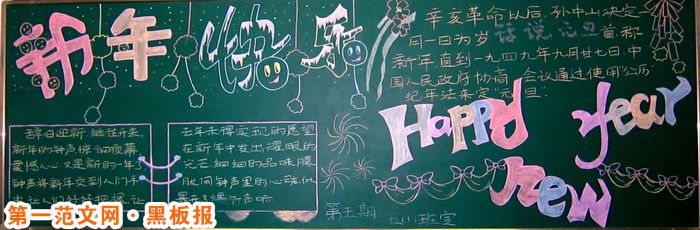 新年快乐
辞旧迎新，继往开来，
新年的钟声惊动夜幕
震憾人心又是新的一年了
钟声将新年交到人们手
中让人们好好把握，让
去年未得实现的愿望
在新年中发出耀眼的
光芒细细的品味朦
胧间钟声里的心弦似
辛亥革命以后，孙中山决定
月一日为岁 话说元旦 首称
新年直到一九四九年九月廿七日，中
国人民政府协商 会议通过使用"公历"
纪年法来定"元旦"
Happy year
new
第五期
班宣
第一范文网·黑板报